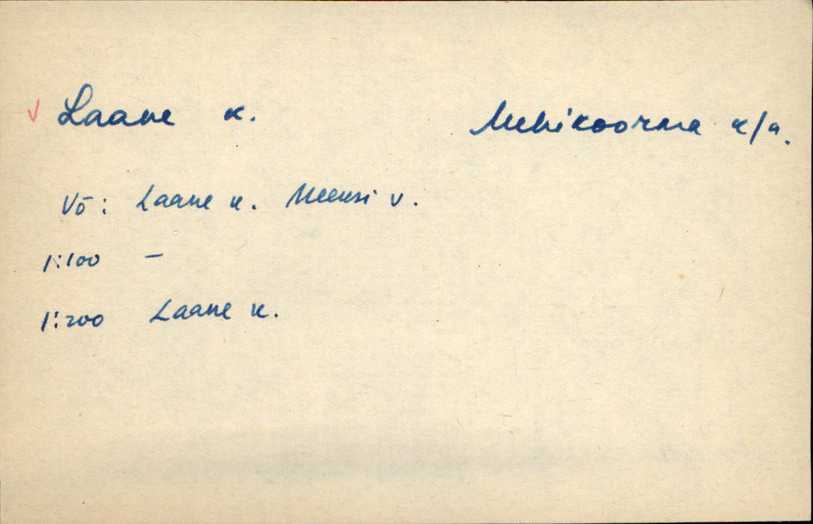 √ Laane k. Mehikoorma k/n.
Võ: Laane k. Meeksi v.
1:100 –
1:200 Laane k.